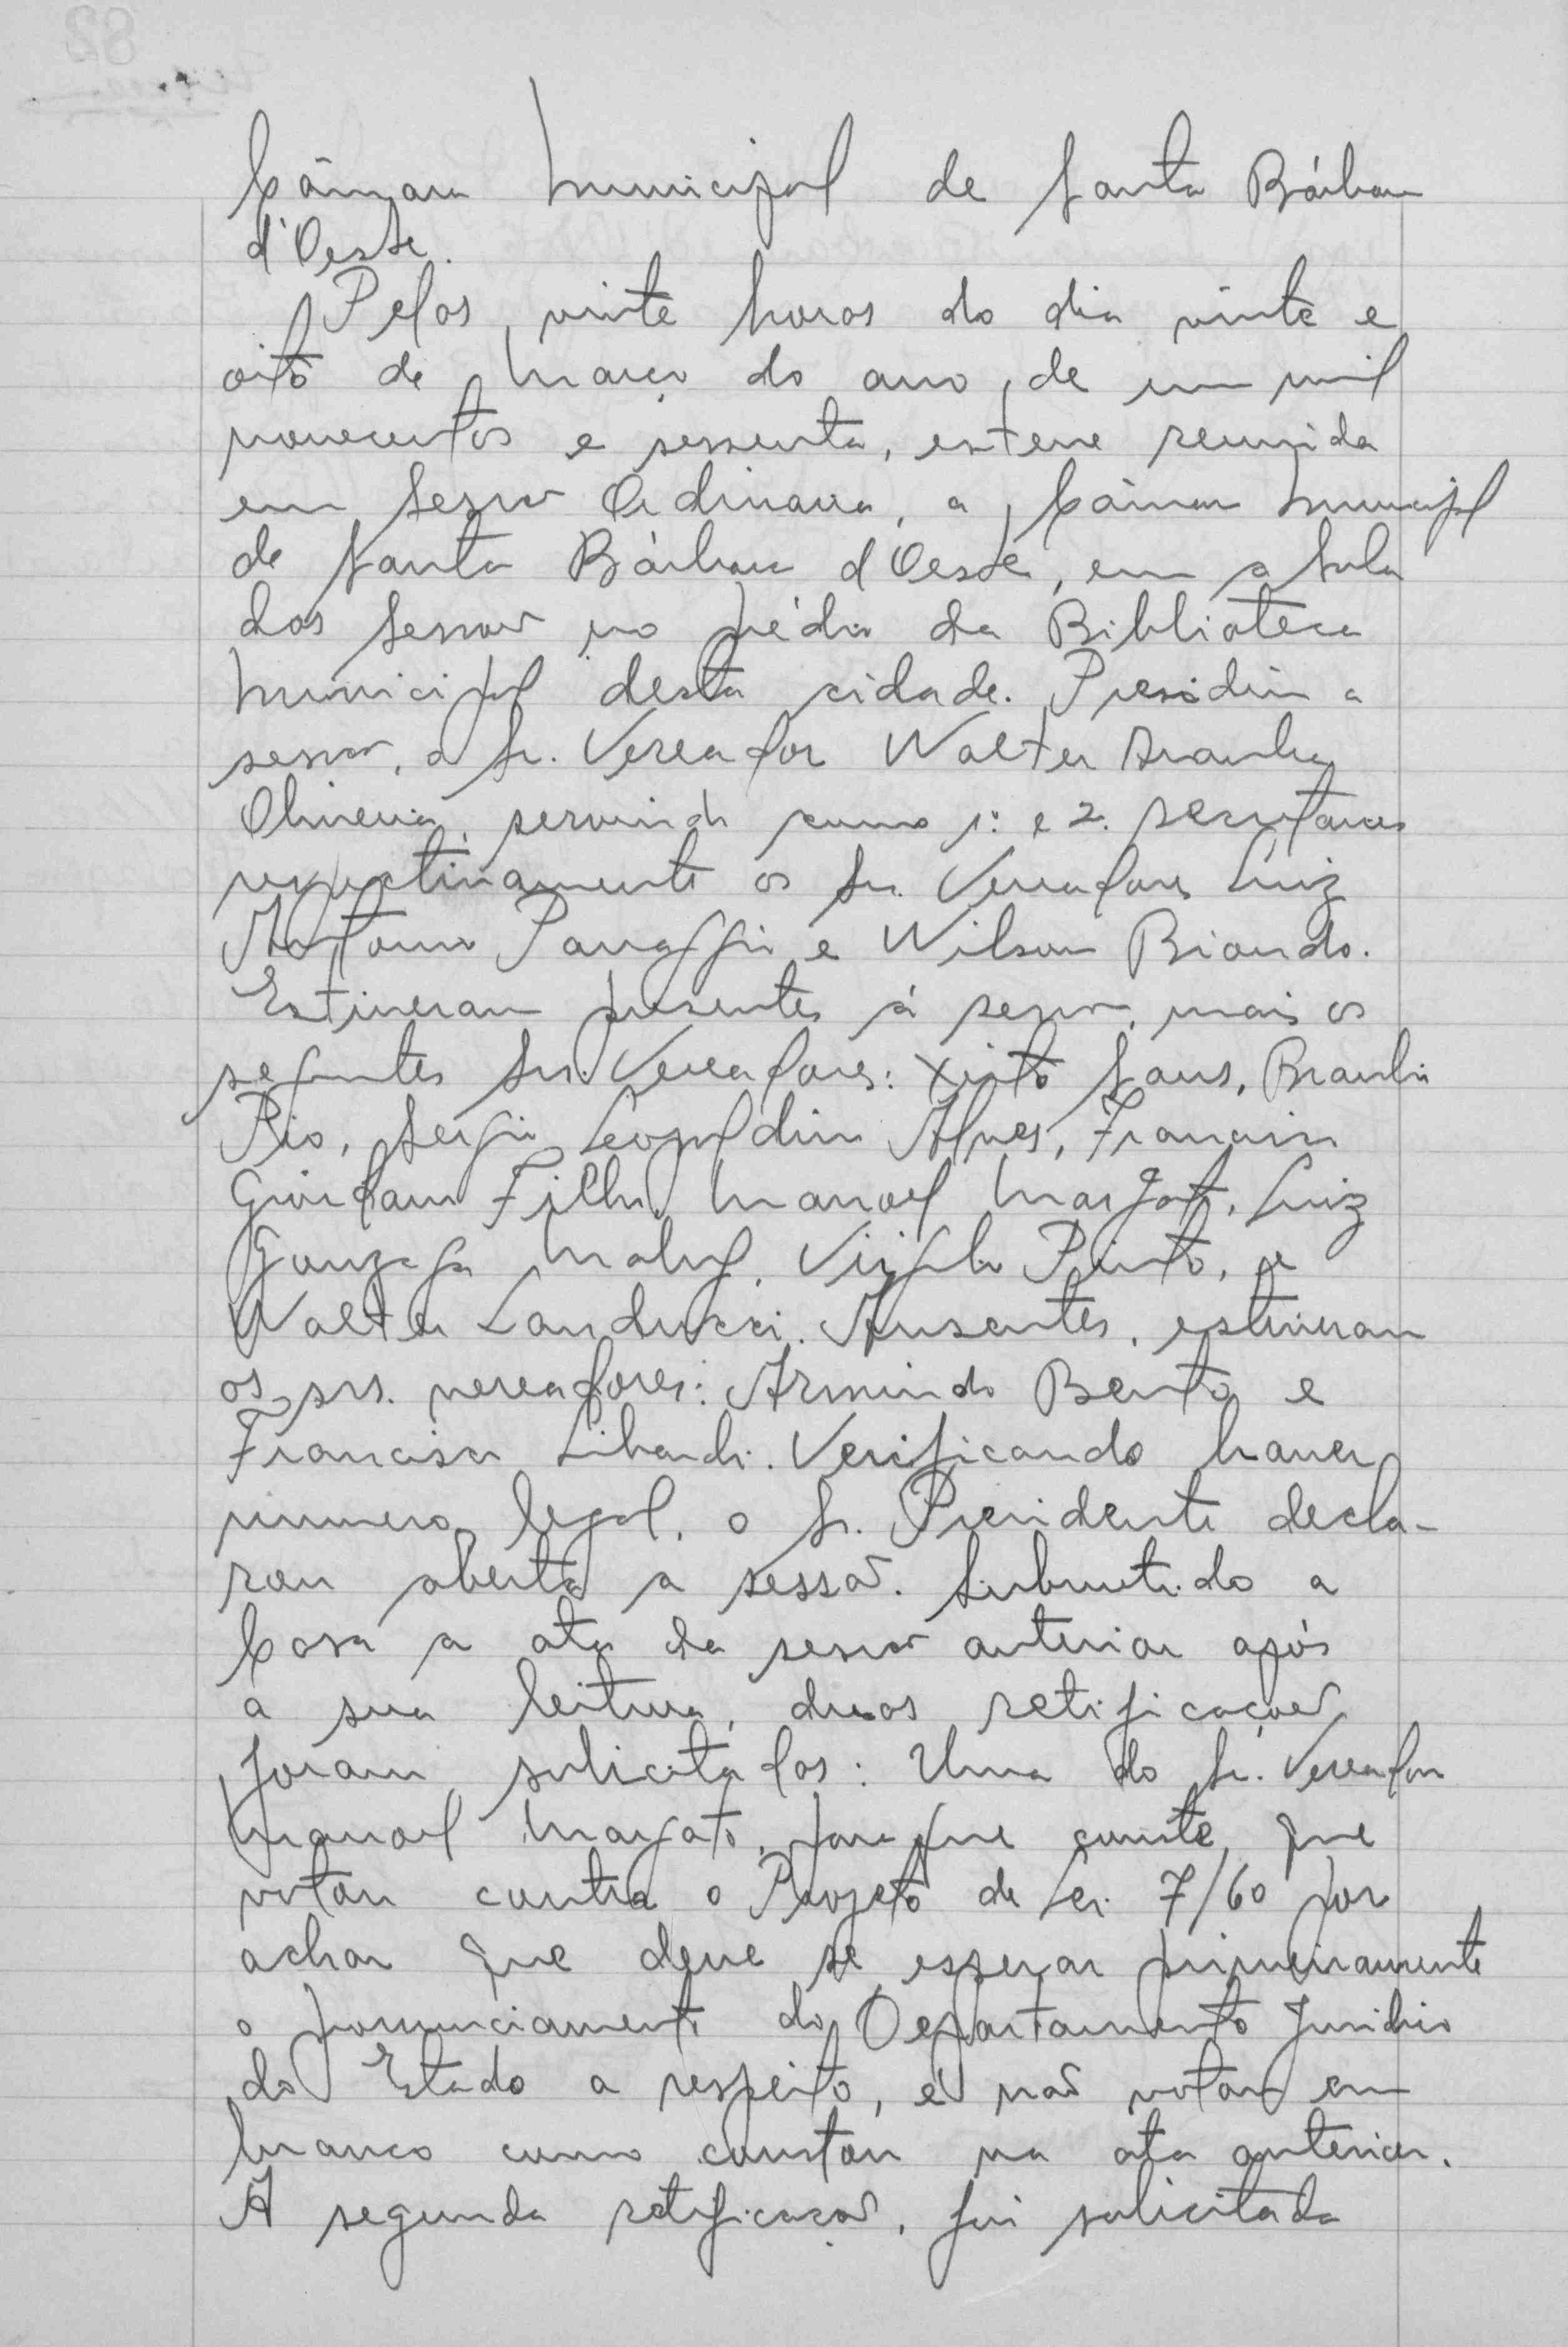 Câmara Municipal de Santa Bárbara
d'Oeste.
Pelas vinte horas do dia vinte e
oito de Março do ano de um mil
novecentos e sessenta, esteve reunida
em Sessão Ordinaria, a Câmara Municipal
de Santa Bárbara d'Oeste, em a Sala
das Sessões no prédio da Biblioteca
Municipal desta cidade. Presidiu a
sessão, o Sr. Vereador Walter Aranha
Oliveira, servindo como 1º e 2º secretarios
respectivamente os Srs. Vereadores Luiz
Antonio Panaggio e Wilson Biondo.
Estiveram presentes á sessão, mais os
seguintes Srs. Vereadores: Xisto Sans, Braulio
Pio, Sergio Leopoldino Alves, Francisco
Giordano Filho, Manoel Margato, Luiz
Gonzaga Maluf, Virgilio Pinto, e
Walter Landucci. Ausentes, estiveram
os srs. vereadores: Armindo Bento e
Francisco Libardi. Verificando haver
numero legal, o Sr. Presidente decla-
rou aberta a sessão. Submetido a
Casa a ata da sessão anterior após
a sua leitura, duas retificações
foram solicitadas: Uma do Sr. Vereador
Manoel Margato, para que conste que
votou contra o Projeto de Lei 7/60 por
achar que deve se esperar primeiramente
o pronunciamento do Departamento Juridico
do Estado a respeito, e não votou em
branco como constou na ata anterior.
A segunda retificação, foi solicitada